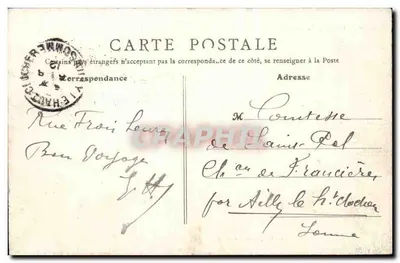 CARTE POSTALE
Certains pays étrangers n'acceptant pas la correspondance de ce côté, se renseigner à la Poste
Correspondance
Adresse
Rue Frois
Bon Voyage
M Comtesse
de Saint Pol
Ch au de Francières
par Ailly le ht clocher
Somme